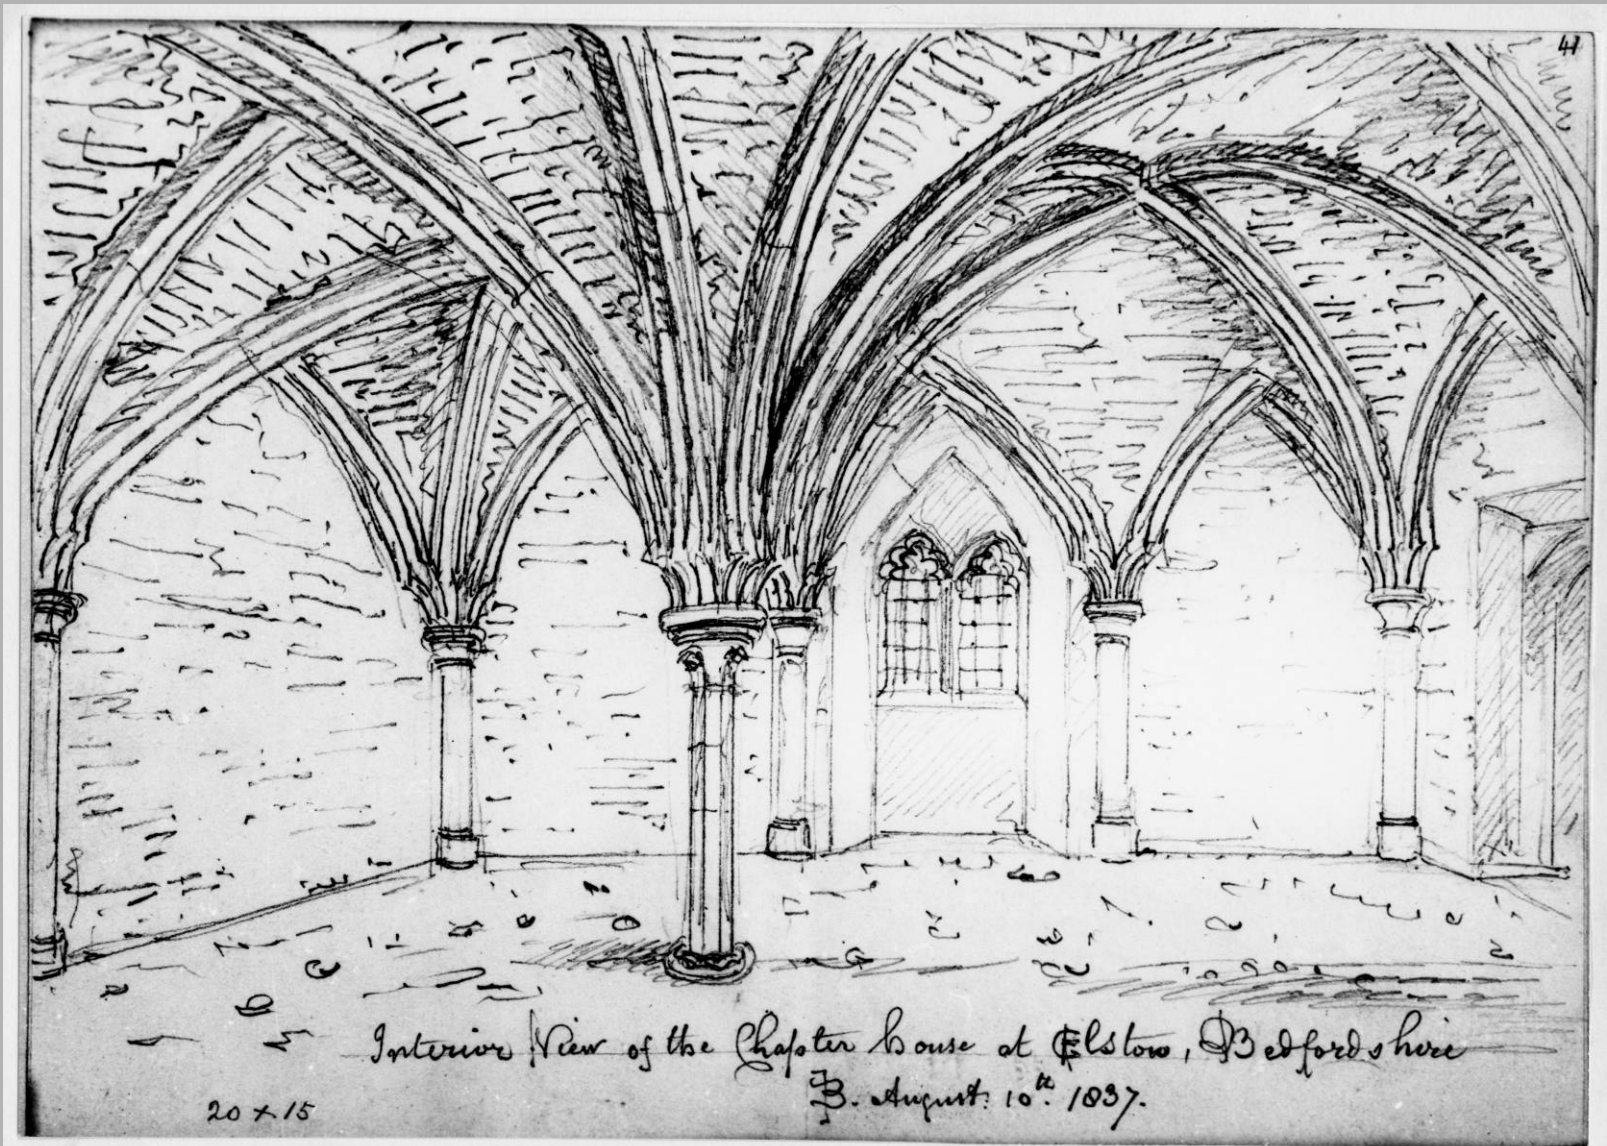 41
Interior View of the Chapter house at Elstow, Bedfordshire
B. August. 10th. 1837.
20 x 15